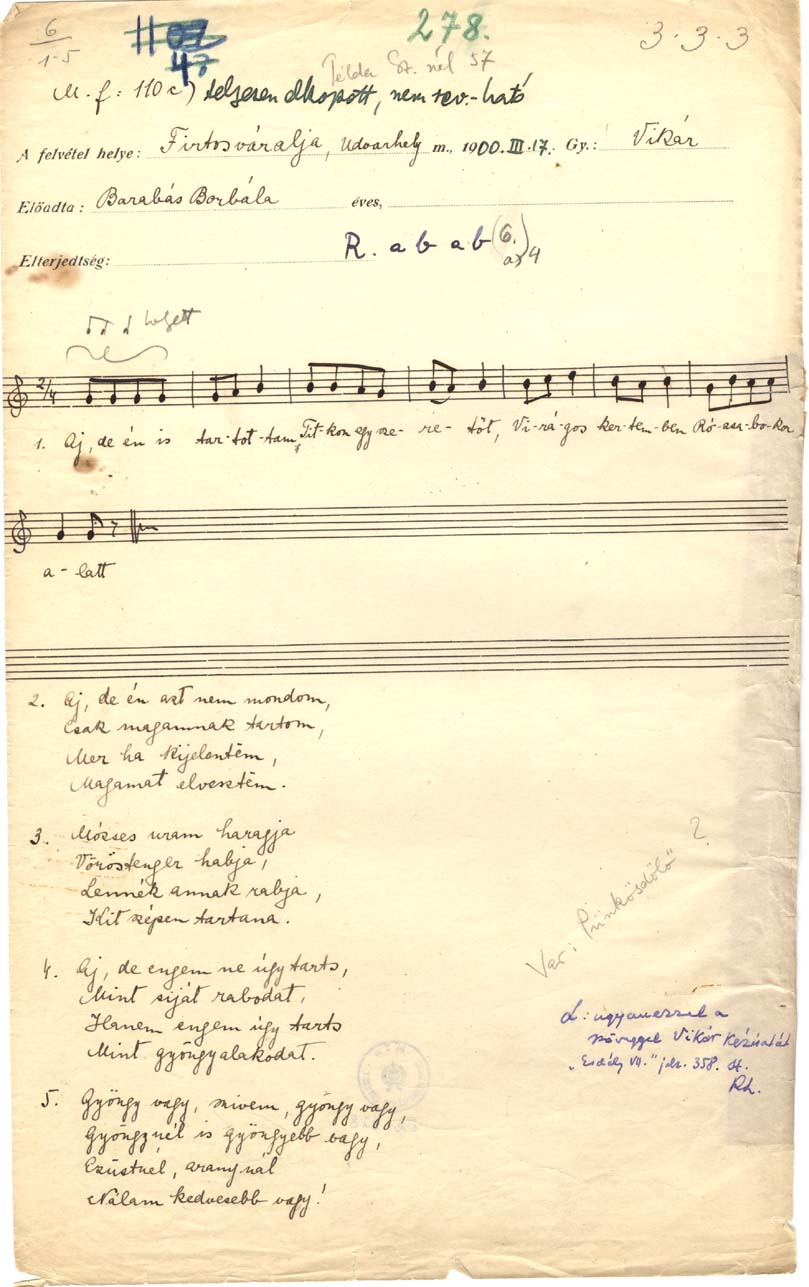 6
1-5
47
278.
3.3.3
Példa St. nél 57
M.f: 110c) teljesen elkopott, nem rev.-ható
A felvétel helye: Firtosváralja, Udvarhely m., 1900.III.17. Gy.: Vikár
Előadta: Barabás Borbála éves,
Elterjedtség: R. a b a b (6.)
4
helyett
2/4
1. Aj, de én is tar-tot-tam Tit-kon egy sze-re-tőt, Vi-rá-gos ker-tem-ben Ró-zsa-bo-kor
a-latt
2. Aj, de én azt nem mondom,
Csak magamnak tartom,
Mer ha kijelentëm,
Magamat elvesztëm.
3. Mózses uram haragja
Vöröstenger habja,
Lennék annak rabja,
Kit szépen tartana.
4. Aj, de engem ne úgy tarts,
Mint siját rabodat,
Hanem engem úgy tarts
Mint gyöngyalakodat.
5. Gyöngy vagy, szivem, gyöngy vagy,
Gyöngynél is gyöngyebb vagy,
Ezüstnél, aranynál
Nálam kedvesebb vagy!
Var: Pünkösdölő ?
L: ugyanezzel a
szöveggel Vikár kéziratát
„Erdély VII." jelz. 358. sz.